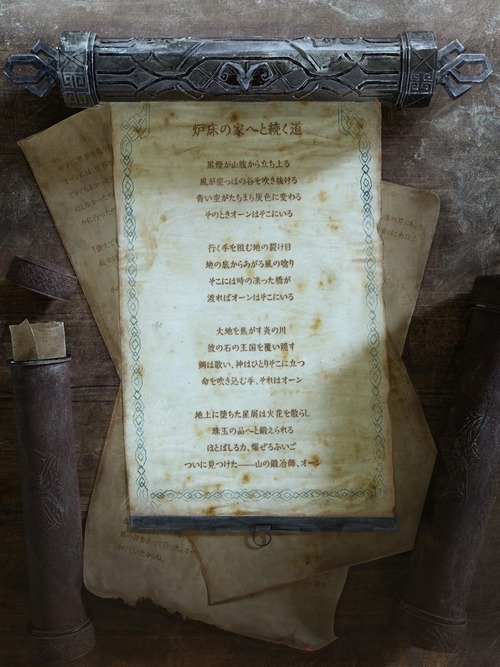 炉床の家へと続く道
黒煙が山腹から立ち上る
風が空っぽの谷を吹き抜ける
青い空がたちまち灰色に変わる
そのときオーンはそこにいる
行く手を阻む地の裂け目
地の底からあがる風の唸り
そこには時の凍った橋が
渡ればオーンはそこにいる
大地を焦がす炎の川
彼の石の王国を覆い隠す
鋼は歌い、神はひとりそこに立つ
命を吹き込む手、それはオーン
地上に堕ちた星屑は火花を散らし
珠玉の品へと鍛えられる
ほとばしる力、爆ぜるふいご
ついに見つけた――山の鍛冶師、オーン